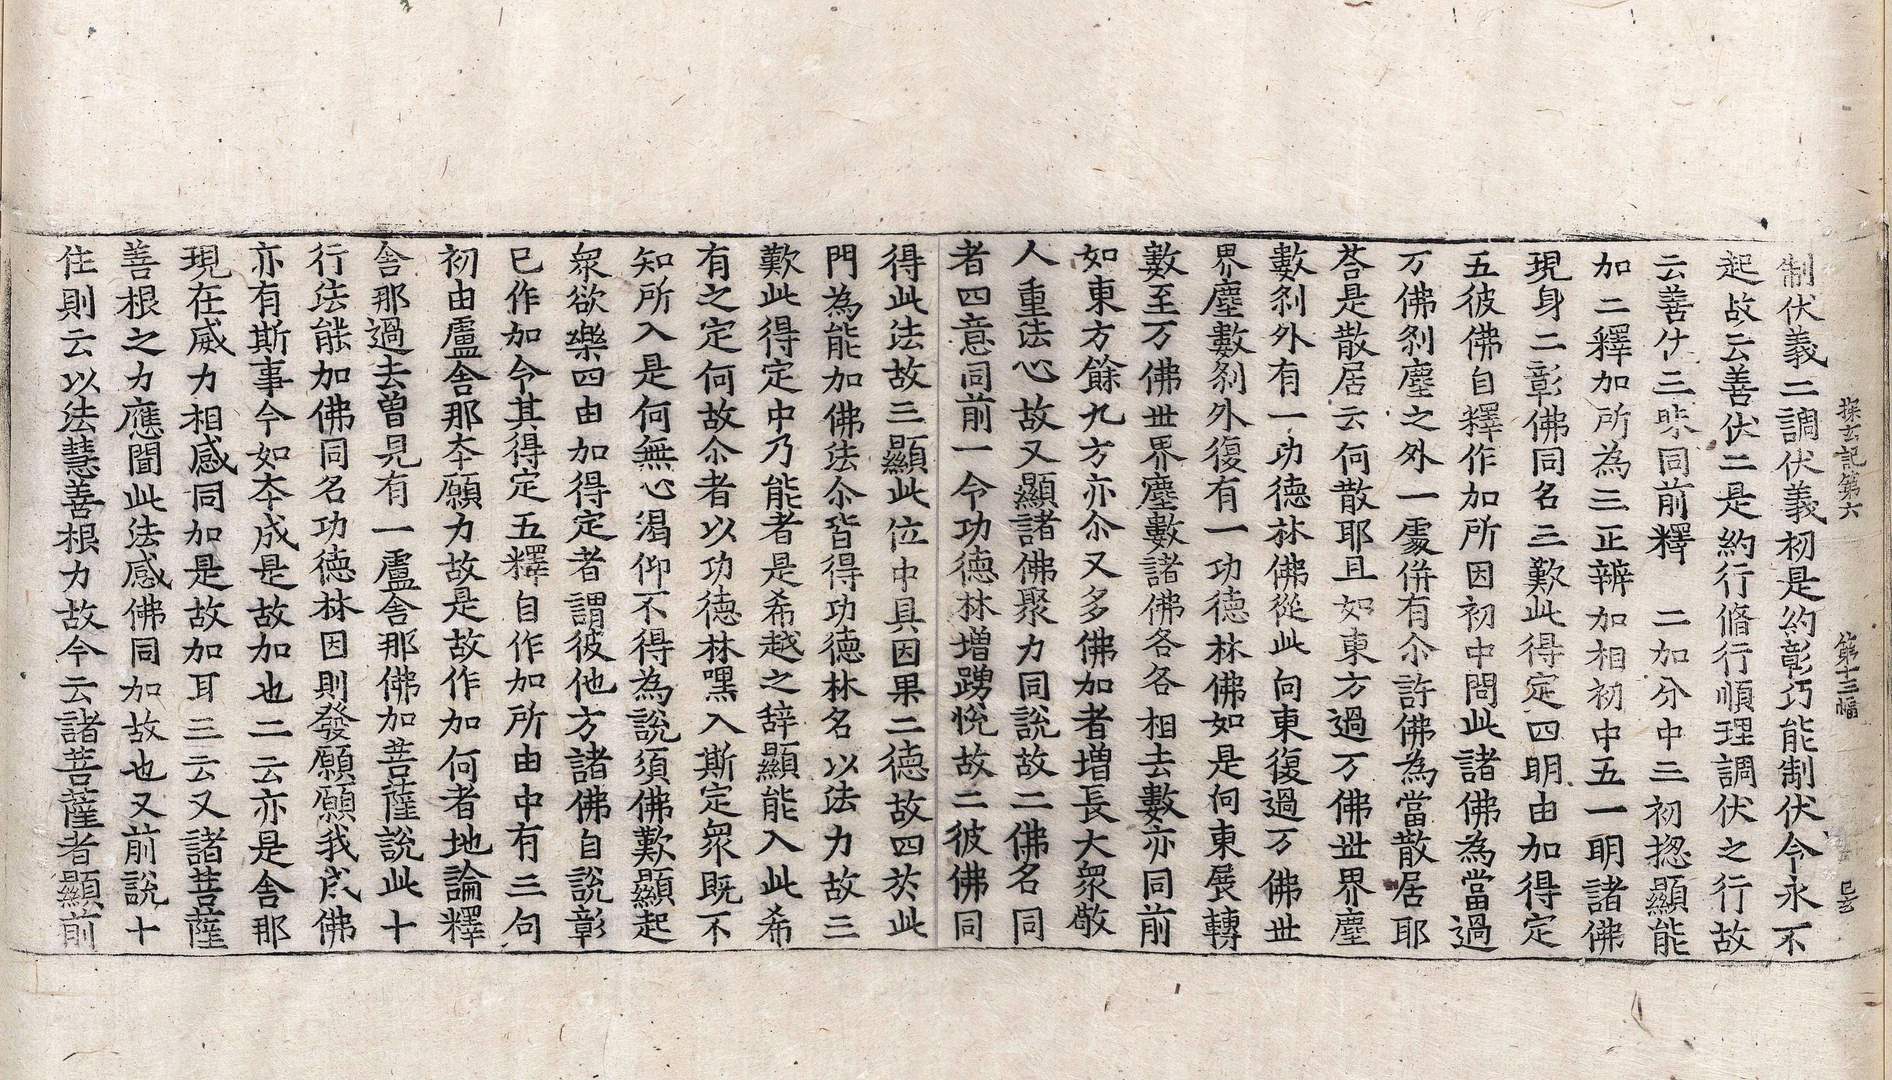 探玄記第六 第十三幅 号
制伏義二調伏義初是約彰巧能制伏令永不
起故云善伏二是約行脩行順理調伏之行故
云善
同前釋 二加分中三初揔顯能
加二釋加所為三正辨加相初中五一明諸佛
現身二彰佛同名三歎此得定四明由加得定
五彼佛自釋作加所因初中問此諸佛為當過
万佛刹塵之外一處併有尒許佛為當散居耶
荅是散居云何散耶且如東方過万佛世界塵
數刹外有一功德林佛從此向東復過万佛世
界塵數刹外復有一功德林佛如是向東展轉
數至万佛世界塵數諸佛各各相去數亦同前
如東方餘九方亦尒又多佛加者增長大衆敬
人重法心故又顯諸佛聚力同說故二佛名同
者四意同前一令功德林增踴悅故二彼佛同
得此法故三顯此位中具因果二德故四於此
門為能加佛法尒皆得功德林名以法力故三
歎此得定中乃能者是希越之辞顯能入此希
有之定何故尒者以功德林嘿入斯定衆既不
知所入是何無心渴仰不得為說須佛歎顯起
衆欲樂四由加得定者謂彼他方諸佛自說彰
已作加令其得定五釋自作加所由中有三句
初由盧舍那夲願力故是故作加何者地論釋
舍那過去曾見有一盧舍那佛加菩薩說此十
行法能加佛同名功德林因則發願願我成佛
亦有斯事今如夲成是故加也二云亦是舍那
現在威力相感同加是故加耳三云又諸菩薩
善根之力應聞此法感佛同加故也又前說十
住則云以法慧善根力故今云諸菩薩者顯前